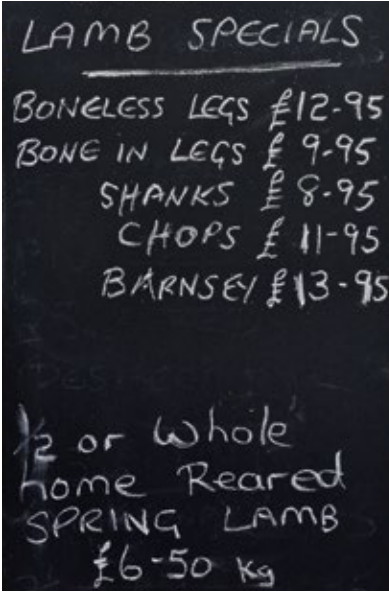 LAMB SPECIALS
BONELESS LEGS £12-95
BONE IN LEGS £ 9-95
SHANKS £ 8-95
CHOPS £ 11-95
BARNSEY £13-95
½ or Whole
home Reared
SPRING LAMB
£6-50 kg